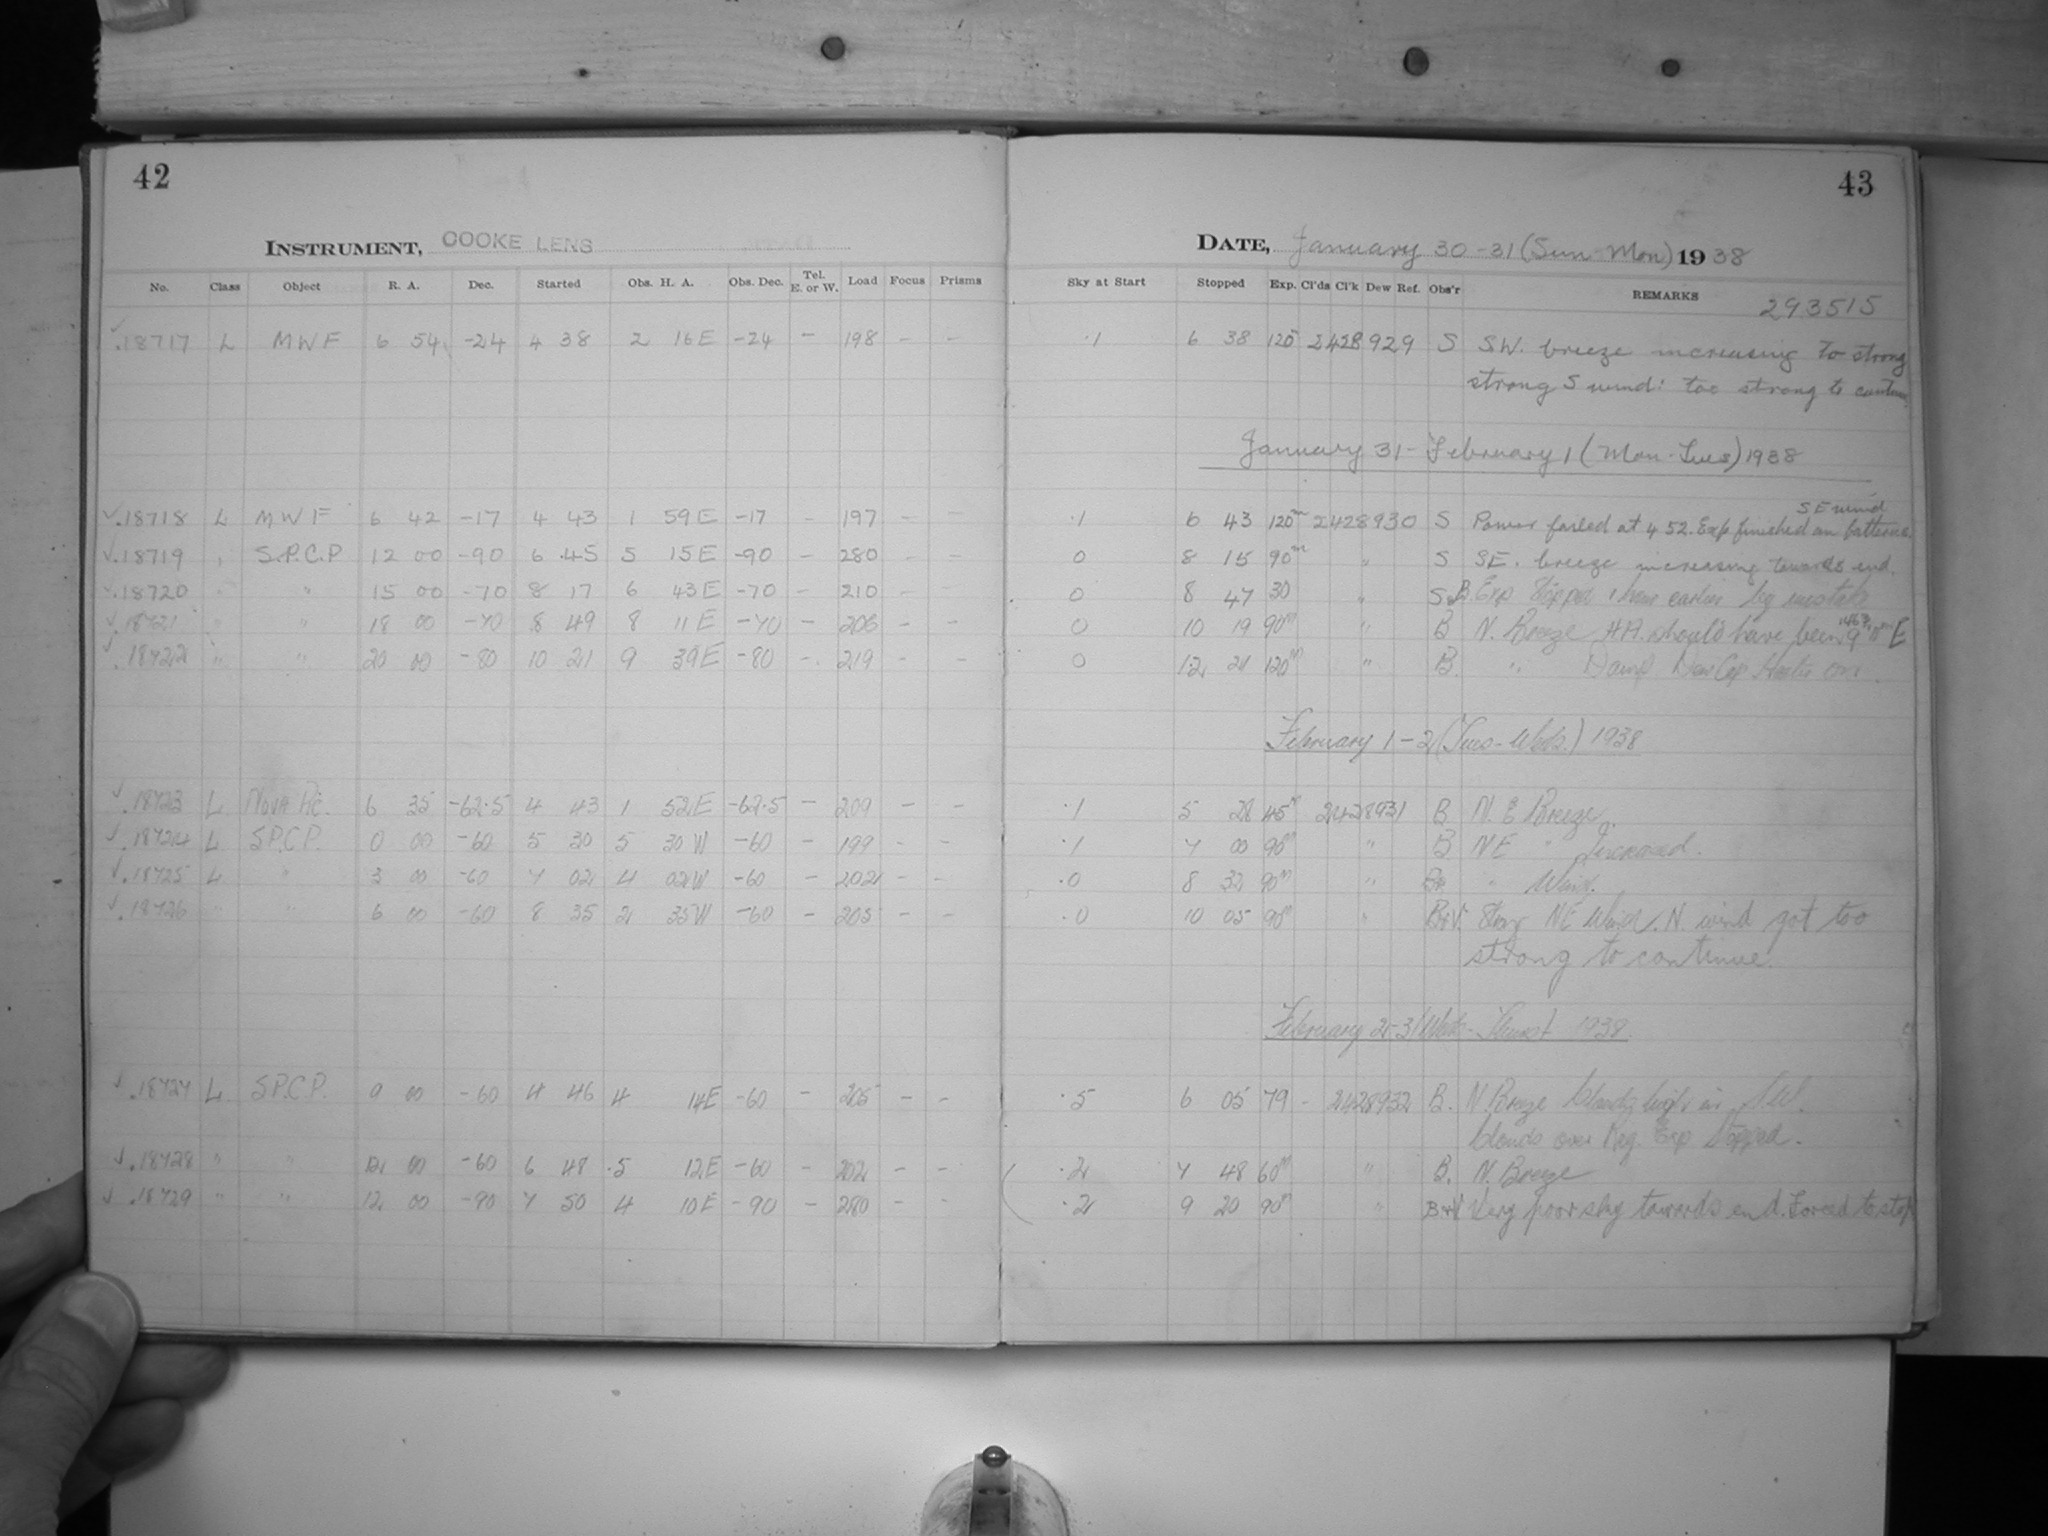 42
43
INSTRUMENT, COOKE LENS
DATE, January 30-31 (Sun-Mon) 1938
No. Class Object R. A. Dec. Started Obs. H. A. Obs. Dec. Tel. E. or W. Load Focus Prisms Sky at Start Stopped Exp. Cl'ds Cl'k Dew Ref. Obs'r REMARKS
293515
✓.18717 L MWF 6 54 -24 4 38 2 16E -24 - 198 - - .1 6 38 120 2428929 S S.W. breeze increasing to strong
strong S wind: too strong to continue
January 31-February 1 (Mon-Tues) 1938
SE wind
✓.18718 L MWF 6 42 -17 4 43 1 59E -17 - 197 - - .1 6 43 120m 2428930 S Power failed at 4 52. Exp finished on batteries.
✓.18719 S.P.C.P 12 00 -90 6 45 5 15E -90 - 280 - - 0 8 15 90m " S SE. breeze increasing towards end.
✓.18720 " " 15 00 -70 8 17 6 43E -70 - 210 - - 0 8 47 30 " S&B. Exp Stopped 1 hour earlier by mistake
✓.18721 " " 18 00 -70 8 49 8 11E -70 - 206 - - 0 10 19 90m " B N. Breeze H.A. should have been 9 11m E
✓.18722 " " 20 00 -80 10 21 9 39E -80 - 219 - - 0 12 21 120m " B. " Damp Dew Cap Heater on.
February 1-2 (Tues-Weds.) 1938
✓.18723 L Nova Pic. 6 35 -62.5 4 43 1 52E -62.5 - 209 - - .1 5 28 45m 2428931 B N. E Breeze.
✓.18724 L S.P.C.P. 0 00 -60 5 30 5 30W -60 - 199 - - .1 7 00 90m " B NE " Increased.
✓.18725 L " 3 00 -60 7 02 4 02W -60 - 202 - - .0 8 32 90m " " Wind.
✓.18726 " " 6 00 -60 8 35 2 35W -60 - 205 - - .0 10 05 90m " B&V. Strong NE Wind. N. wind got too
strong to continue.
February 2-3 (Weds-Thurs) 1938.
✓.18727 L S.P.C.P. 9 00 -60 4 46 4 14E -60 - 205 - - .5 6 05 79 - 2428932 B. N Breeze
Clouds over Reg. Exp Stopped.
✓.18728 " " 12 00 -60 6 48 5 12E -60 - 202 - - .2 7 48 60m " B. N. Breeze
✓.18729 " " 12 00 -90 7 50 4 10E -90 - 280 - - .2 9 20 90m " B&V Very poor sky towards end. Forced to stop